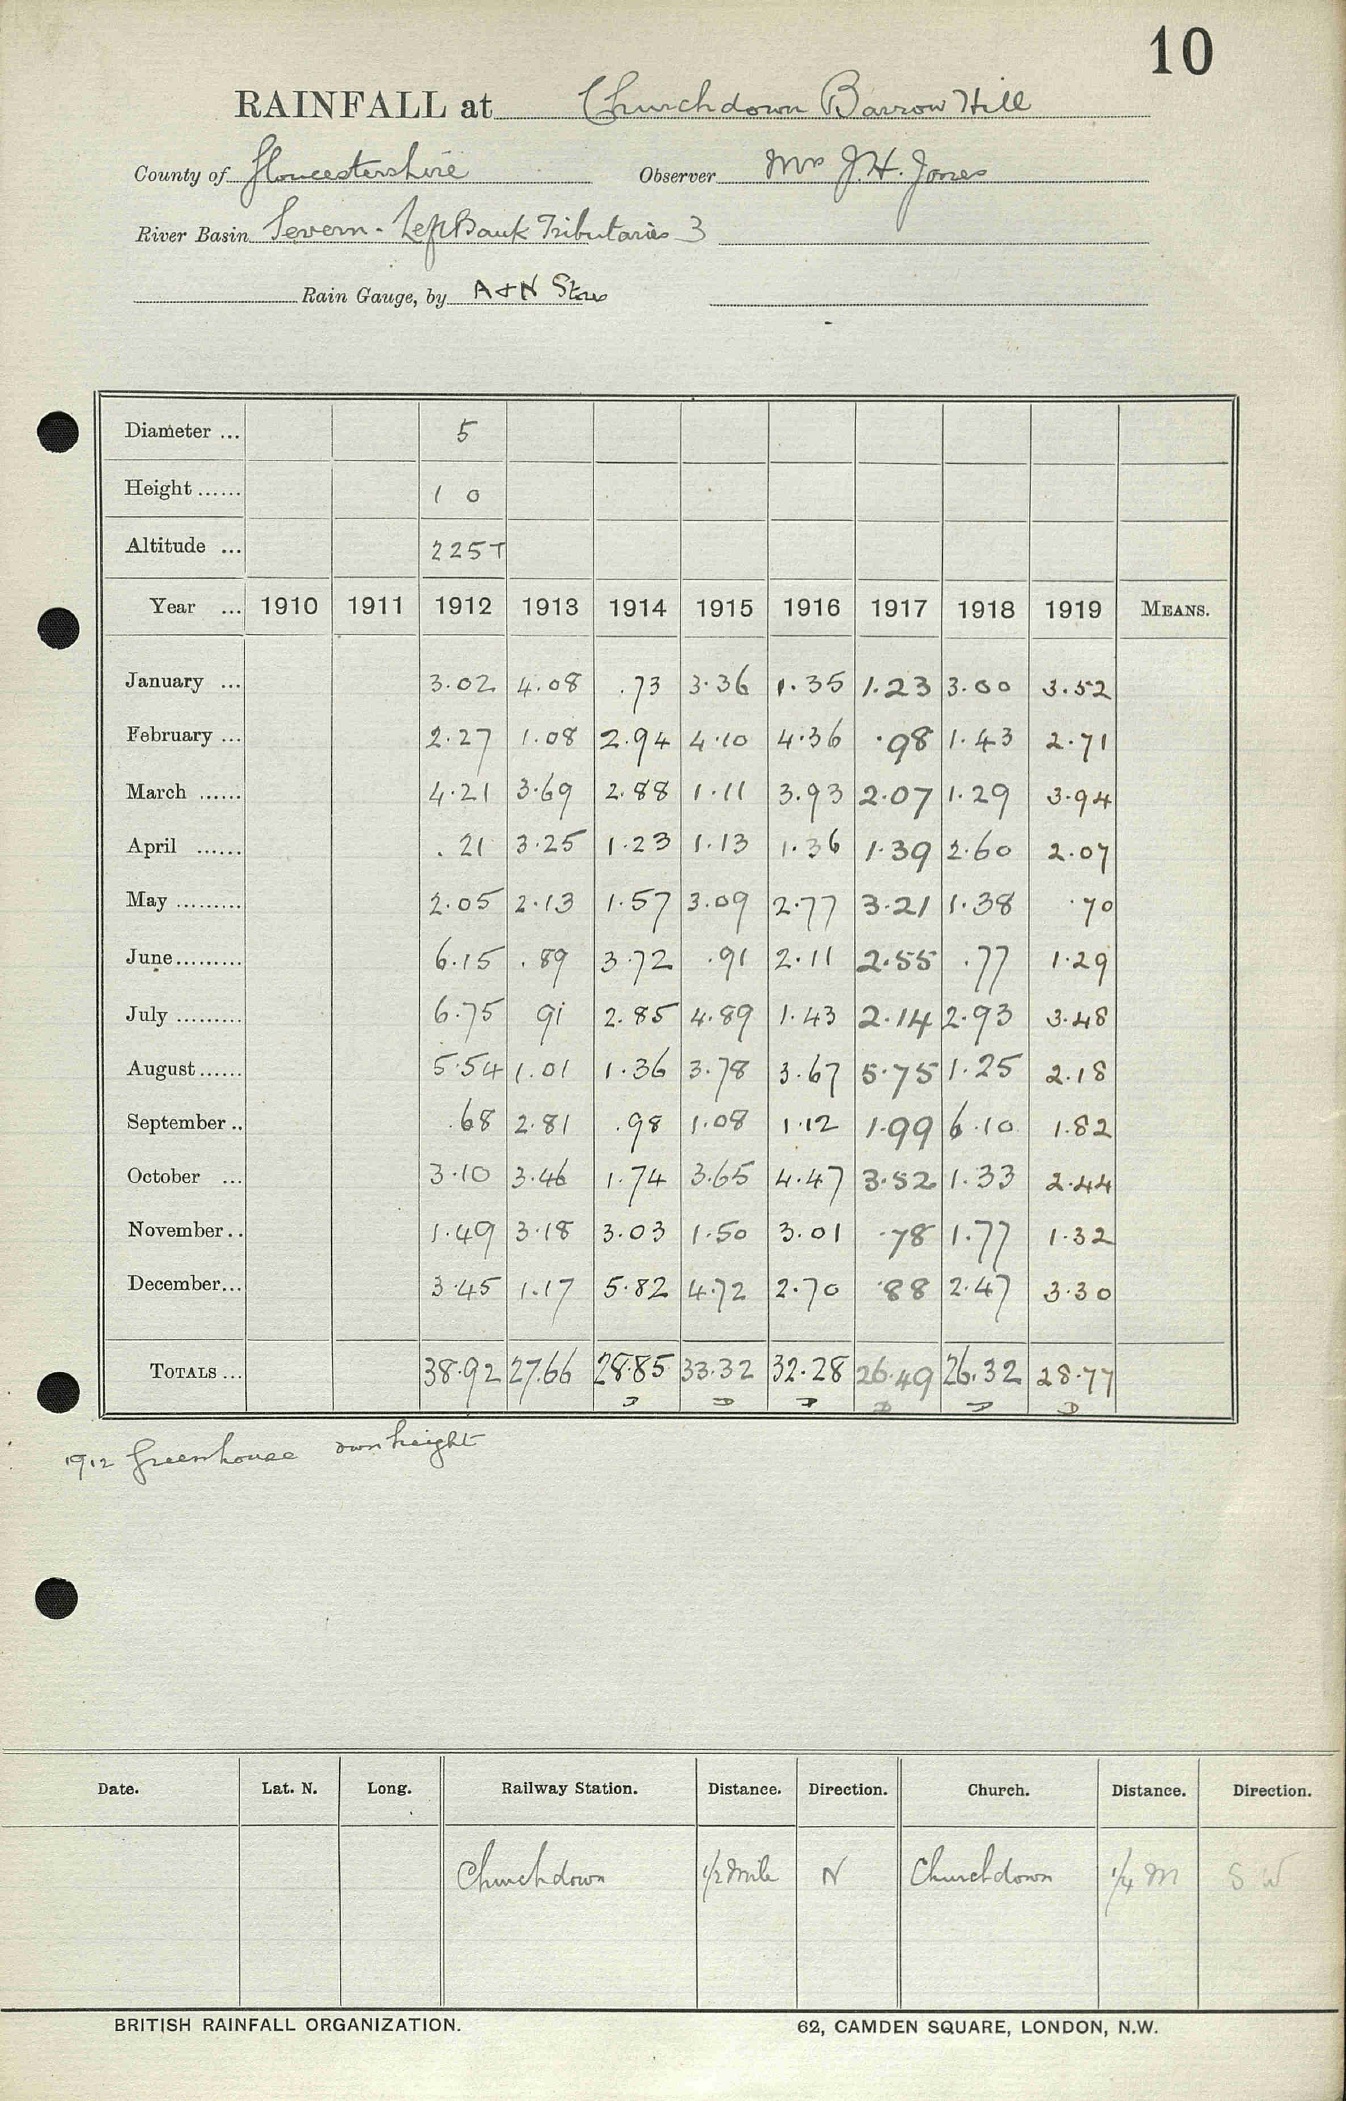 10
RAINFALL at Churchdown Barrow Hill
County of Gloucestershire Observer Mrs J. H. Jones
River Basin Severn - Left Bank Tributaries 3
Rain Gauge, by A & N Stores
Diameter ... 5
Height ...... 1 0
Altitude ... 225T
Year ... 1910 1911 1912 1913 1914 1915 1916 1917 1918 1919 MEANS.
January ... 3.02 4.08 .73 3.36 1.35 1.23 3.00 3.52
February ... 2.27 1.08 2.94 4.10 4.36 .98 1.43 2.71
March ...... 4.21 3.69 2.88 1.11 3.93 2.07 1.29 3.94
April ...... .21 3.25 1.23 1.13 1.36 1.39 2.60 2.07
May ......... 2.05 2.13 1.57 3.09 2.77 3.21 1.38 .70
June......... 6.15 .89 3.72 .91 2.11 2.55 .77 1.29
July ......... 6.75 91 2.85 4.89 1.43 2.14 2.93 3.48
August...... 5.54 1.01 1.36 3.78 3.67 5.75 1.25 2.18
September .. .68 2.81 .98 1.08 1.12 1.99 6.10 1.82
October ... 3.10 3.46 1.74 3.65 4.47 3.52 1.33 2.44
November.. 1.49 3.18 3.03 1.50 3.01 .78 1.77 1.32
December... 3.45 1.17 5.82 4.72 2.70 .88 2.47 3.30
TOTALS ... 38.92 27.66 28.85 33.32 32.28 26.49 26.32 28.77
D D D D D D
1912 Greenhouse own height
Date. Lat. N. Long. Railway Station. Distance. Direction. Church. Distance. Direction.
Churchdown 1/2 Mile N Churchdown 1/4 M S W
BRITISH RAINFALL ORGANIZATION. 62, CAMDEN SQUARE, LONDON, N.W.